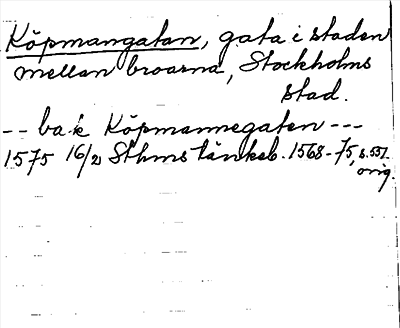 Köpmangatan, gata i staden
mellan broarna, Stockholms
stad.
-- bak Köpmannegaten ---
1575 16/2 Sthms tänkeb. 1568-75, s. 557.
orig.